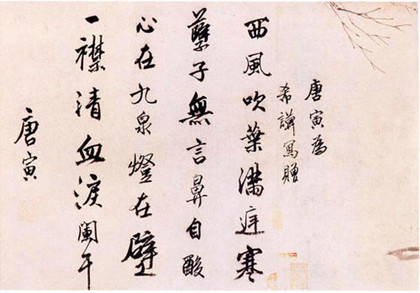 西風吹葉滿庭寒
孽子無言鼻自酸
心在九泉燈在壁
一襟清血淚闌干
唐寅為
希謨寫贈
唐寅